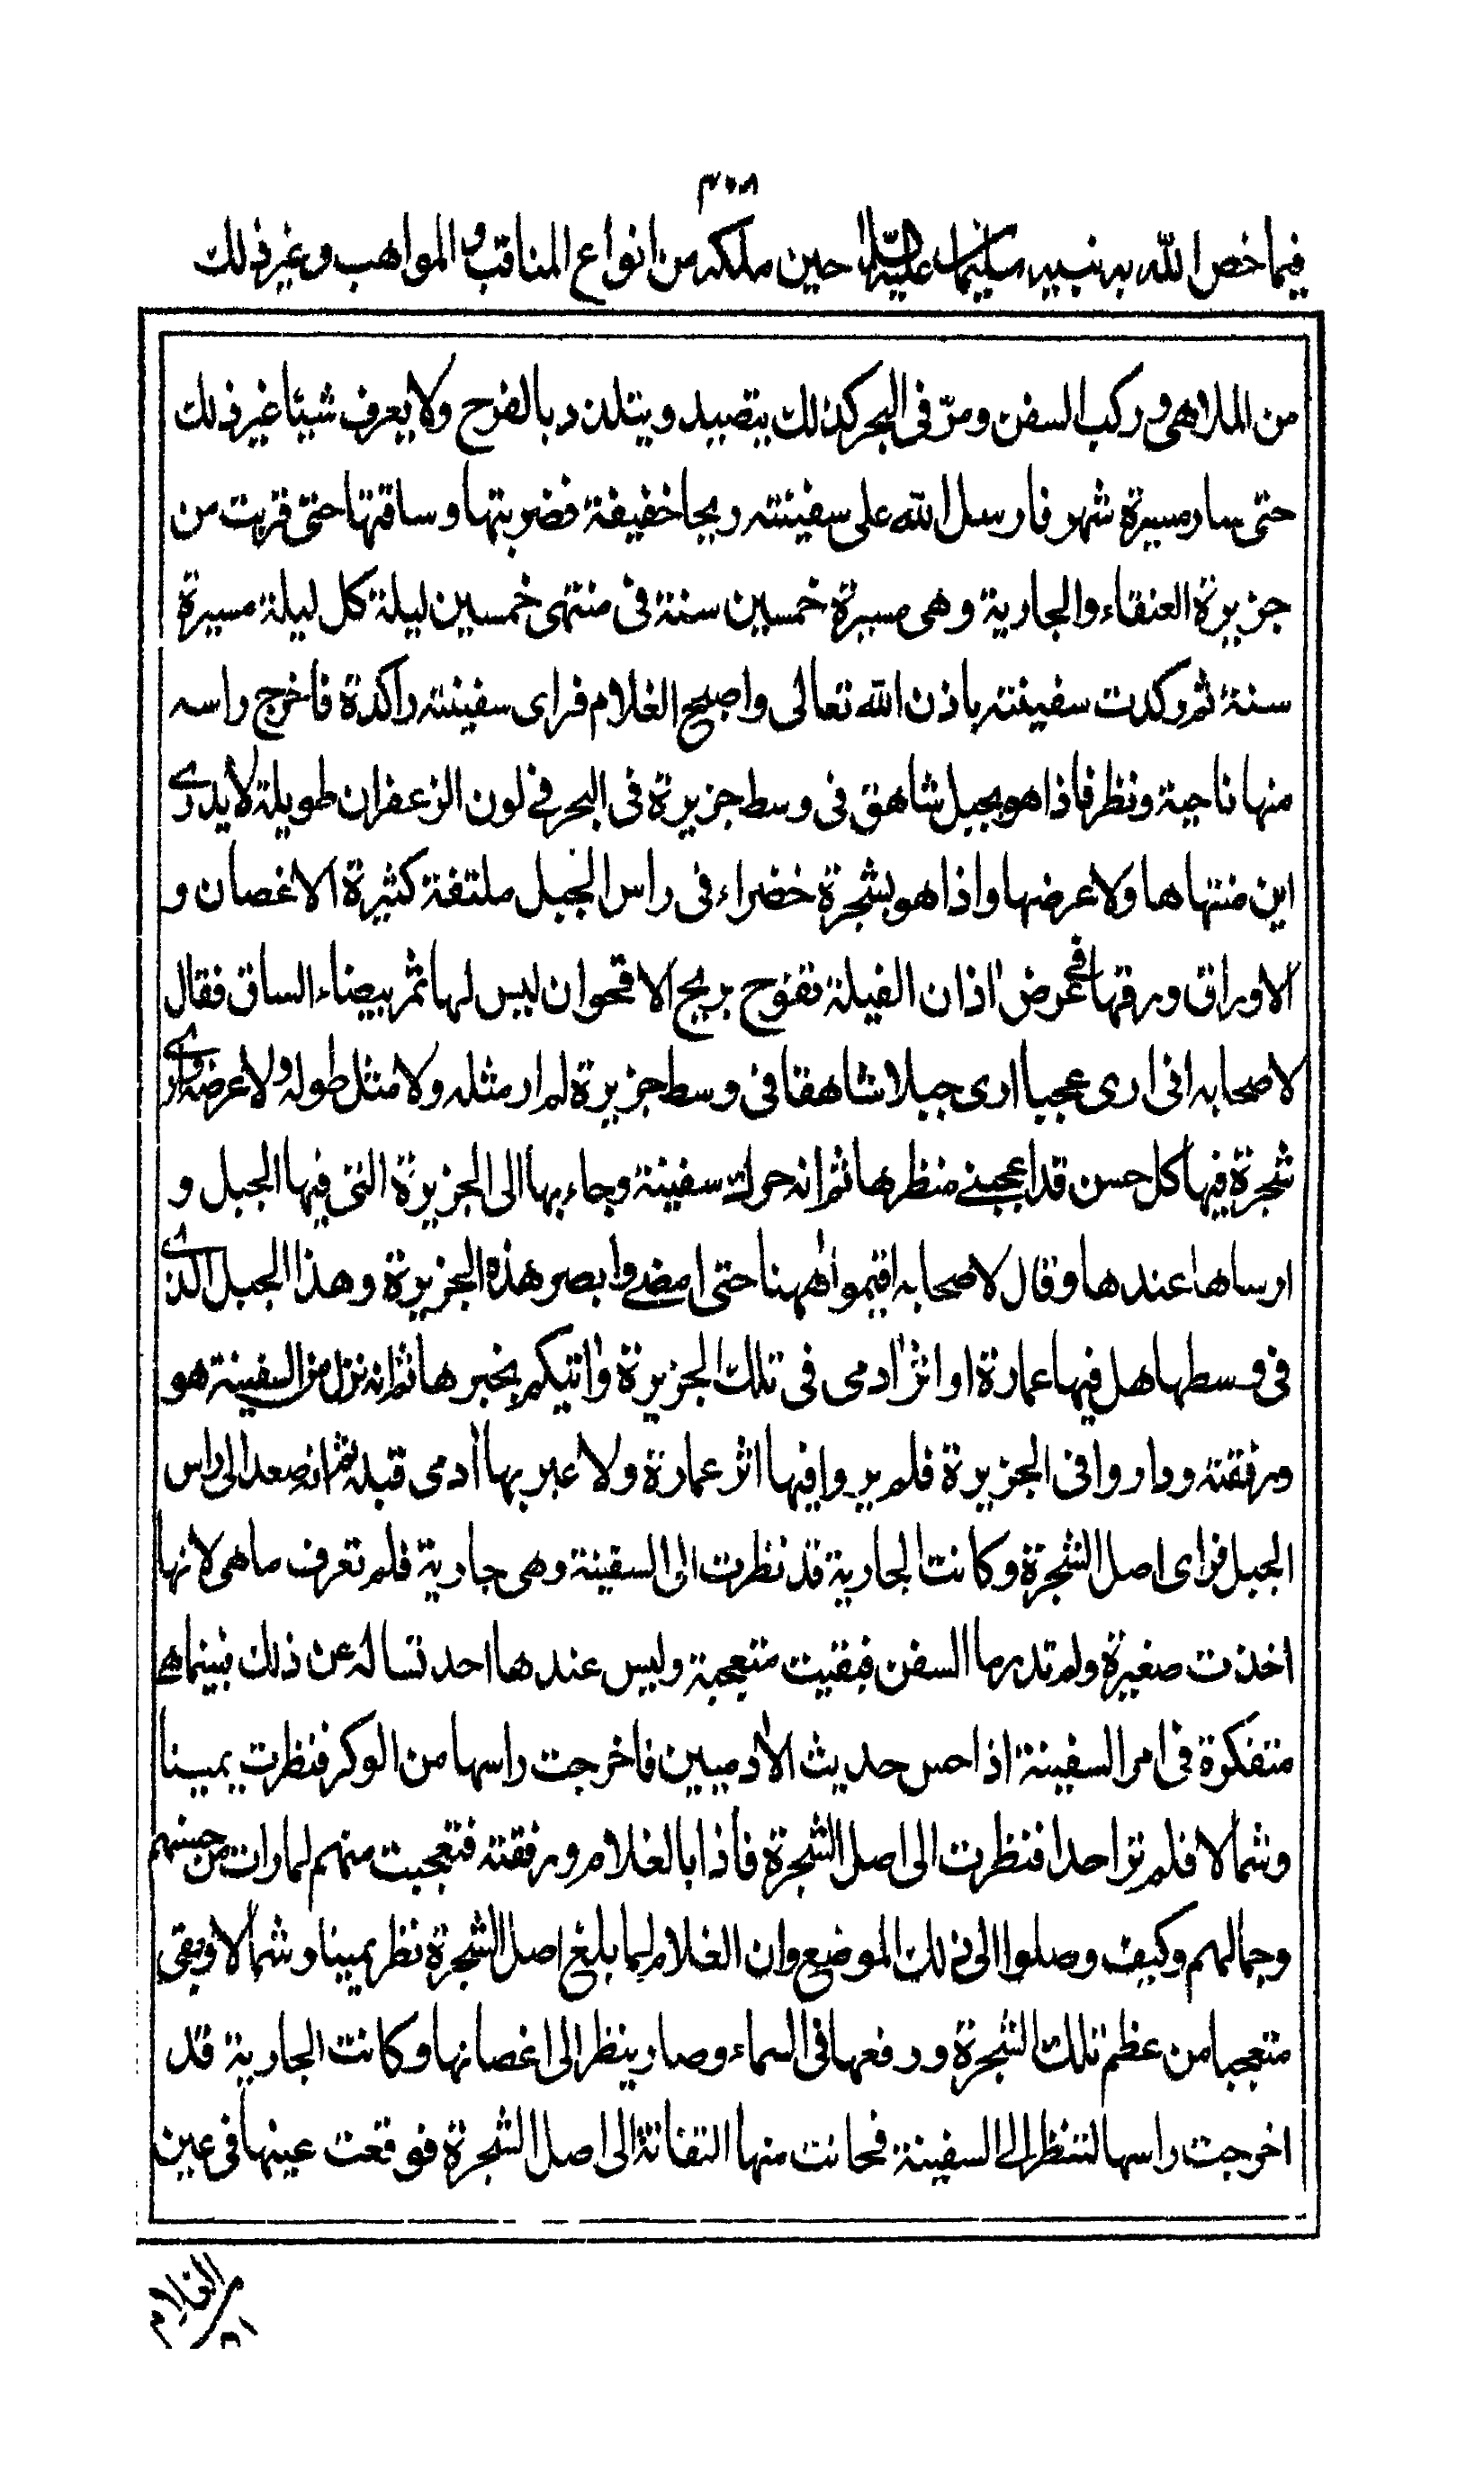 ٣٠٨
فيما خص الله به نبيه سليمان عليه السلام حين ملكه من انواع المناقب والمواهب وغير ذلك
من الملاهي وركب السفن ومرّ في البحر كذلك يتصيد ويتلذذ بالفرح ولا يعرف شيئا غير ذلك
حتى سار مسيرة شهر فارسل الله على سفينته ريحا خفيفة فضربتها وساقتها حتى قربت من
جزيرة العنقاء والجارية وهى مسيرة خمسين سنة فى منتهى خمسين ليلة كل ليلة مسيرة
سنة ثم ركدت سفينته باذن الله تعالى واصبح الغلام فراى سفينته راكدة فاخرج راسه
منها ناحية ونظر فاذا هو بجبل شاهق فى وسط جزيرة فى البحر فے لون الزعفران طويلة لا يدرى
اين منتهاها ولا عرضها واذا هو بشجرة خضراء فى راس الجبل ملتفة كثيرة الاغصان و
الاوراق ورقها فى عرض اذان الفيلة تفوح بريح الاقحوان ليس لها ثمر بيضاء الساق فقال
لاصحابه انى ارى عجبا ارى جبلا شاهقا فى وسط جزيرة لم ار مثله ولا مثل طوله ولا عرضه وارى
شجرة فيها كل حسن قد اعجبنے منظرها ثم انه حرك سفينة وجاء بها الى الجزيرة التى فيها الجبل و
ارساها عندها وقال لاصحابه اقيموا ههنا حتى امضے وابصر هذه الجزيرة وهذا الجبل الذى
فى وسطها هل فيها عمارة او اثر ادمى فى تلك الجزيرة واتيكم بخبرها ثم انه نزل من السفينة هو
ورفقته وداروا فى الجزيرة فلم يروا فيها اثر عمارة ولا عبر بها ادمى قبله ثم انه صعد الى راس
الجبل فراى اصل الشجرة وكانت الجارية قد نظرت الى السفينة وهى جارية فلم تعرف ما هى لانها
اخذت صغيرة ولم تدر ما السفن فبقيت متعجبة وليس عندها احد تساله عن ذلك فبينما هے
متفكرة فى امر السفينة اذا حس حديث الادميين فاخرجت راسها من الوكر فنظرت يمينا
وشمالا فلم تر احدا فنظرت الى اصل الشجرة فاذا بالغلام ورفقته فتعجبت منهم لما رات من حسنهم
وجمالهم وكيف وصلوا الى ذلك الموضع وان الغلام لما بلغ اصل الشجرة نظر يمينا وشمالا وبقى
متعجبا من عظم تلك الشجرة ورفعها فى السماء وصار ينظر الى اغصانها وكانت الجارية قد
اخرجت راسها لتنظر الے السفينة فحانت منها التفاتة الى اصل الشجرة فوقعت عينها فى عين
الغلام